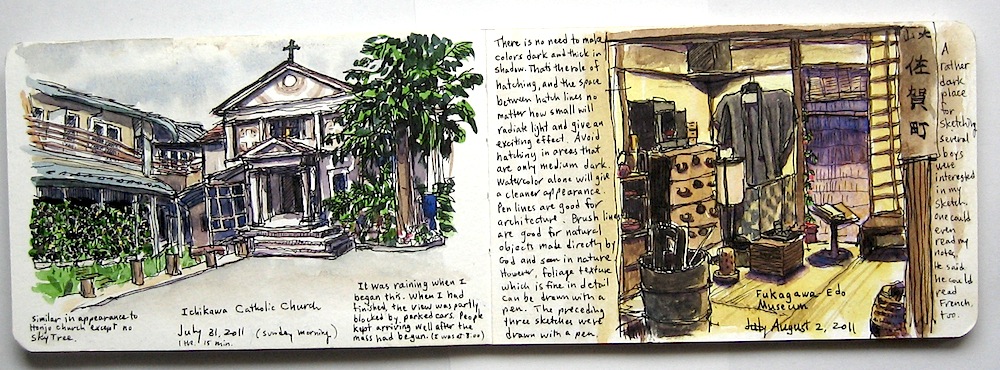 Similar in appearance to
Honjo church except no
Sky Tree.
Ichikawa Catholic Church
July 31, 2011 (Sunday morning)
1 Hr. 15 min.
It was raining when I
began this. When I had
finished, the view was partly
blocked by parked cars. People
kept arriving well after the
mass had begun. (I was at 8:00)
There is no need to make
colors dark and thick in
shadow. That's the role of
hatching, and the space
between hatch lines no
matter how small will
radiate light and give an
exciting effect. Avoid
hatching in areas that
are only medium dark.
Watercolor alone will give
a cleaner appearance.
Pen lines are good for
architecture. Brush lines
are good for natural
objects made directly by
God and seen in nature.
However, foliage texture
which is fine in detail
can be drawn with a
pen. The preceding
three sketches were
drawn with a pen.
佐賀町
Fukagawa Edo
Museum
July August 2, 2011
A
rather
dark
place
for
sketching
several
boys
were
interested
in my
sketch,
one could
even
read my
note,
He said
he could
read
French,
too.